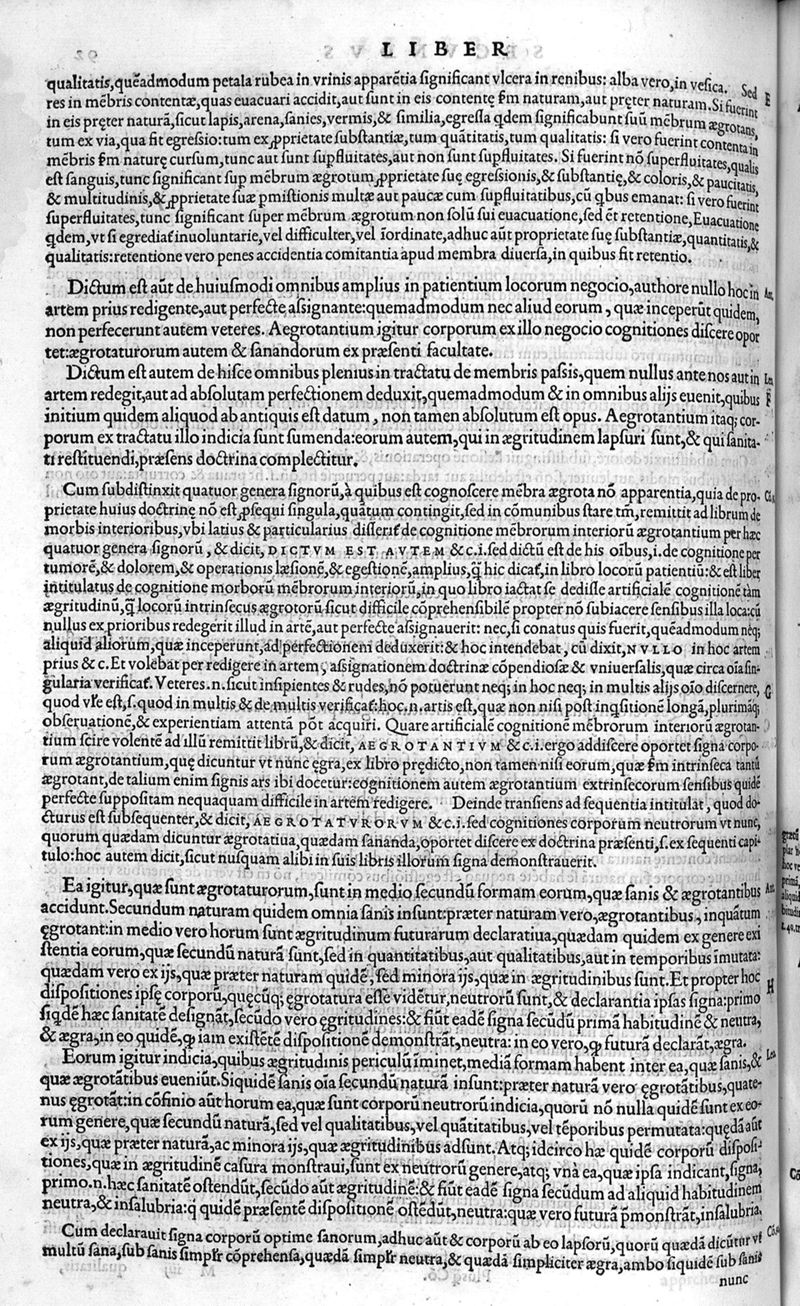 LIBER
qualitatis, quēadmodum petala rubea in vrinis apparētia significant vlcera in renibus: alba vero, in vesica. Sed
res in mēbris contentæ, quas euacuari accidit, aut sunt in eis contentę fm naturam, aut pręter naturam. Si fuerint E
in eis pręter naturā, sicut lapis, arena, sanies, vermis, & similia, egressa qdem significabunt suū mēbrum ægrotans,
tum ex via, qua fit egressio: tum ex ꝓprietate substantiæ, tum quātitatis, tum qualitatis: si vero fuerint contenta in
mēbris fm naturę cursum, tunc aut sunt supfluitates, aut non sunt supfluitates. Si fuerint nō superfluitates, qualis
est sanguis, tunc significant sup mēbrum ægrotum ꝓprietate suę egressionis, & substantię, & coloris, & paucitatis,
& multitudinis, & ꝓprietate suæ pmistionis multæ aut paucæ cum supfluitatibus, cū qbus emanat: si vero fuerint
superfluitates, tunc significant super mēbrum ægrotum non solū sui euacuatione, sed ēt retentione, Euacuatione
qdem, vt si egrediat᷑ inuoluntarie, vel difficulter, vel īordinate, adhuc aūt proprietate suę substantiæ, quantitatis, &
qualitatis: retentione vero penes accidentia comitantia apud membra diuersa, in quibus fit retentio.
Dictum est aūt de huiusmodi omnibus amplius in patientium locorum negocio, authore nullo hoc in
artem prius redigente, aut perfecte assignante: quemadmodum nec aliud eorum, quæ inceperūt quidem,
non perfecerunt autem veteres. Aegrotantium igitur corporum ex illo negocio cognitiones discere opor
tet: ægrotaturorum autem & sanandorum ex præsenti facultate.
Dictum est autem de hisce omnibus plenius in tractatu de membris passis, quem nullus ante nos aut in
artem redegit, aut ad absolutam perfectionem deduxit, quemadmodum & in omnibus alijs euenit, quibus F
initium quidem aliquod ab antiquis est datum, non tamen absolutum est opus. Aegrotantium itaq; cor-
porum ex tractatu illo indicia sunt sumenda: eorum autem, qui in ægritudinem lapsuri sunt, & qui sanita-
ti restituendi, præsens doctrina complectitur.
Cum subdistinxit quatuor genera signorū, à quibus est cognoscere mēbra ægrota nō apparentia, quia de pro-
prietate huius doctrinę nō est ꝓsequi singula, quātum contingit, sed in cōmunibus stare tm̄, remittit ad librum de
morbis interioribus, vbi latius & particularius disserit᷑ de cognitione mēbrorum interiorū ægrotantium per hæc
quatuor genera signorū, & dicit, DICTVM EST AVTEM &c. i. sed dictū est de his oībus, i. de cognitione per
tumorē, & dolorem, & operationis læsionē, & egestionē, amplius, q̄ hic dicat᷑, in libro locorū patientiū: & est liber
intitulatus de cognitione morborū mēbrorum interiorū, in quo libro iactat se dedisse artificialē cognitionē tàm
ægritudinū, q̄ locorū intrinsecus ægrotorū sicut difficile cōprehensibilē propter nō subiacere sensibus illa loca: cū
nullus ex prioribus redegerit illud in artē, aut perfecte assignauerit: nec, si conatus quis fuerit, quēadmodum neq;
aliquid aliorum, quæ inceperunt, ad perfectionem deduxerit: & hoc intendebat, cū dixit, NVLLO in hoc artem
prius &c. Et volebat per redigere in artem, assignationem doctrinæ cōpendiosæ & vniuersalis, quæ circa oīa sin-
gularia verificat᷑. Veteres .n. sicut insipientes & rudes, nō potuerunt neq; in hoc neq; in multis alijs oīo discernere, G
quod vr̄e est, s. quod in multis & de multis verificat᷑: hoc .n. artis est, quæ non nisi post inqsitionē longā, plurimāq;
obseruationē, & experientiam attentā pōt acquiri. Quare artificialē cognitionē mēbrorum interiorū ægrotan-
tium scire volentē ad illū remittit librū, & dicit, AEGROTANTIVM &c. i. ergo addiscere oportet signa corpo-
rum ægrotantium, quę dicuntur vt nunc ęgra, ex libro prędicto, non tamen nisi eorum, quæ fm intrinseca tantū
ægrotant, de talium enim signis ars ibi docetur: cognitionem autem ægrotantium extrinsecorum sensibus quidē
perfecte suppositam nequaquam difficile in artem redigere. Deinde transiens ad sequentia intitulat, quod do-
cturus est subsequenter, & dicit, AEGROTATVRORVM &c. i. sed cognitiones corporum neutrorum vt nunc,
quorum quædam dicuntur ægrotatiua, quædam sananda, oportet discere ex doctrina præsenti, s. ex sequenti capi-
tulo: hoc autem dicit, sicut nusquam alibi in suis libris illorum signa demonstrauerit.
Ea igitur, quæ sunt ægrotaturorum, sunt in medio secundū formam eorum, quæ sanis & ægrotantibus
accidunt. Secundum naturam quidem omnia sanis insunt: præter naturam vero, ægrotantibus, inquātum
ęgrotant: in medio vero horum sunt ægritudinum futurarum declaratiua, quædam quidem ex genere exi
stentia eorum, quæ secundū naturā sunt, sed in quantitatibus, aut qualitatibus, aut in temporibus īmutata:
quædam vero ex ijs, quæ præter naturam quidē, sed minora ijs, quæ in ægritudinibus sunt. Et propter hoc
dispositiones ipsę corporū, quęcūq; ęgrotatura esse vidētur, neutrorū sunt, & declarantia ipsas signa: primo H
siqdē hæc sanitatē designāt, secūdo vero ęgritudines: & fiūt eadē signa secūdū primā habitudinē & neutra,
& ægra, in eo quidē, ꝙ iam existētē dispositionē demonstrāt, neutra: in eo vero, ꝙ futurā declarāt, ægra.
Eorum igitur indicia, quibus ægritudinis periculū īminet, mediā formam habent inter ea, quæ sanis, &
quæ ægrotātibus eueniūt. Siquidē sanis oīa secundū naturā insunt: præter naturā vero ęgrotātibus, quate-
nus ęgrotāt: in cōfinio aūt horum ea, quæ sunt corporū neutrorū indicia, quorū nō nulla quidē sunt ex eo-
rum genere, quæ secundū naturā, sed vel qualitatibus, vel quātitatibus, vel tēporibus permutata: quędā aūt
ex ijs, quæ præter naturā, ac minora ijs, quæ ægritudinibus adsunt. Atq; idcirco hæ quidē corporū disposi-
tiones, quæ in ægritudinē casura monstraui, sunt ex neutrorū genere, atq; vnà ea, quæ ipsa indicant, signa,
primo .n. hæc sanitatē ostendūt, secūdo aūt ægritudinē: & fiūt eadē signa secūdum ad aliquid habitudinem
neutra, & insalubria: q quidē præsentē dispositionē ostēdūt, neutra: quæ vero futurā p̄monstrāt, insalubria.
Cum declarauit signa corporū optime sanorum, adhuc aūt & corporū ab eo lapsorū, quorū quædā dicūtur vt
multū sana, sub sanis simplr̄ cōprehensa, quædā simplr̄ neutra, & quædā simpliciter ægra, ambo siquidē sub sanis
nunc